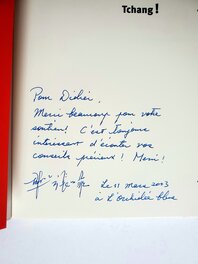 Tchang !
Pour Didier,
Merci beaucoup pour votre
soutien ! C'est toujours
intéressant d'écouter vos
conseils précieux ! Merci !
Le 11 mars 2003
à L'Orchidée bleue